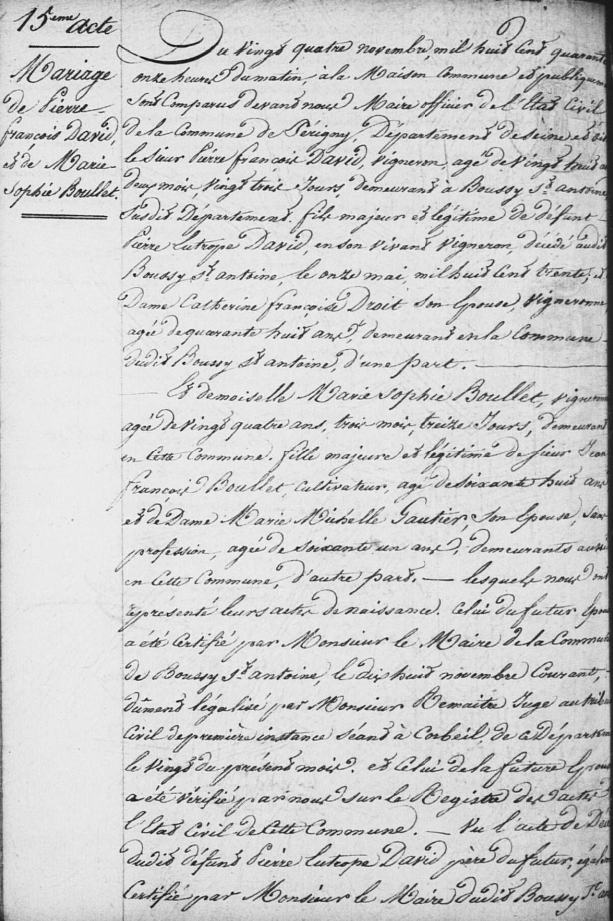 15eme acte
Mariage
de Pierre
françois David,
et de Marie
Sophie Boullet.
Du vingt quatre novembre, mil huit Cent quarante
onze heures du matin, à la Maison Commune et publiquem
Sont Comparus devant nous Maire officier de l'Etat Civil
de la Commune de Périgny, Département de Seine et oise
le Sieur Pierre françois David, vigneron, agé de vingt huit a
deux mois vingt trois Jours, demeurant à Boussy St. antoine,
Susdit Département, fils majeur et légitime de défunt
Pierre Eutrope David, en son vivant vigneron, décédé audit
Boussy St. antoine, le onze mai, mil huit Cent trente, et
Dame Catherine françoise Droit son Epouse, vigneronne,
agée de quarante huit ans, demeurant en la Commune
dudit Boussy St antoine, d'une part.
Et demoiselle Marie Sophie Boullet, vigneronn
agée de vingt quatre ans, trois mois, treize Jours, demeurant
en Cette Commune, fille majeure et légitime de Sieur Jean
françois Boullet, Cultivateur, agé de soixante huit ans
et de Dame Marie Michelle Gautier son Epouse, San
profession, agée de soixante un ans, demeurants aussi
en Cette Commune, d'autre part. — lesquels nous ont
représenté leurs actes de naissance. Celui du futur Epou
a été Certifié par Monsieur le Maire de la Commun
de Boussy St. antoine, le dix huit novembre Courant,
dûment légalisé par Monsieur Remaitre Juge au tribu
Civil de première instance séant à Corbeil, de ce Départem
le vingt du présent mois. et Celui de la future Epous
a été vérifié par nous sur le Registre des actes
l'Etat Civil de Cette Commune. — Vu l'acte de Déc
dudit défunt Pierre Eutrope David père du futur, égalem
Certifié par Monsieur le Maire dudit Boussy St. an